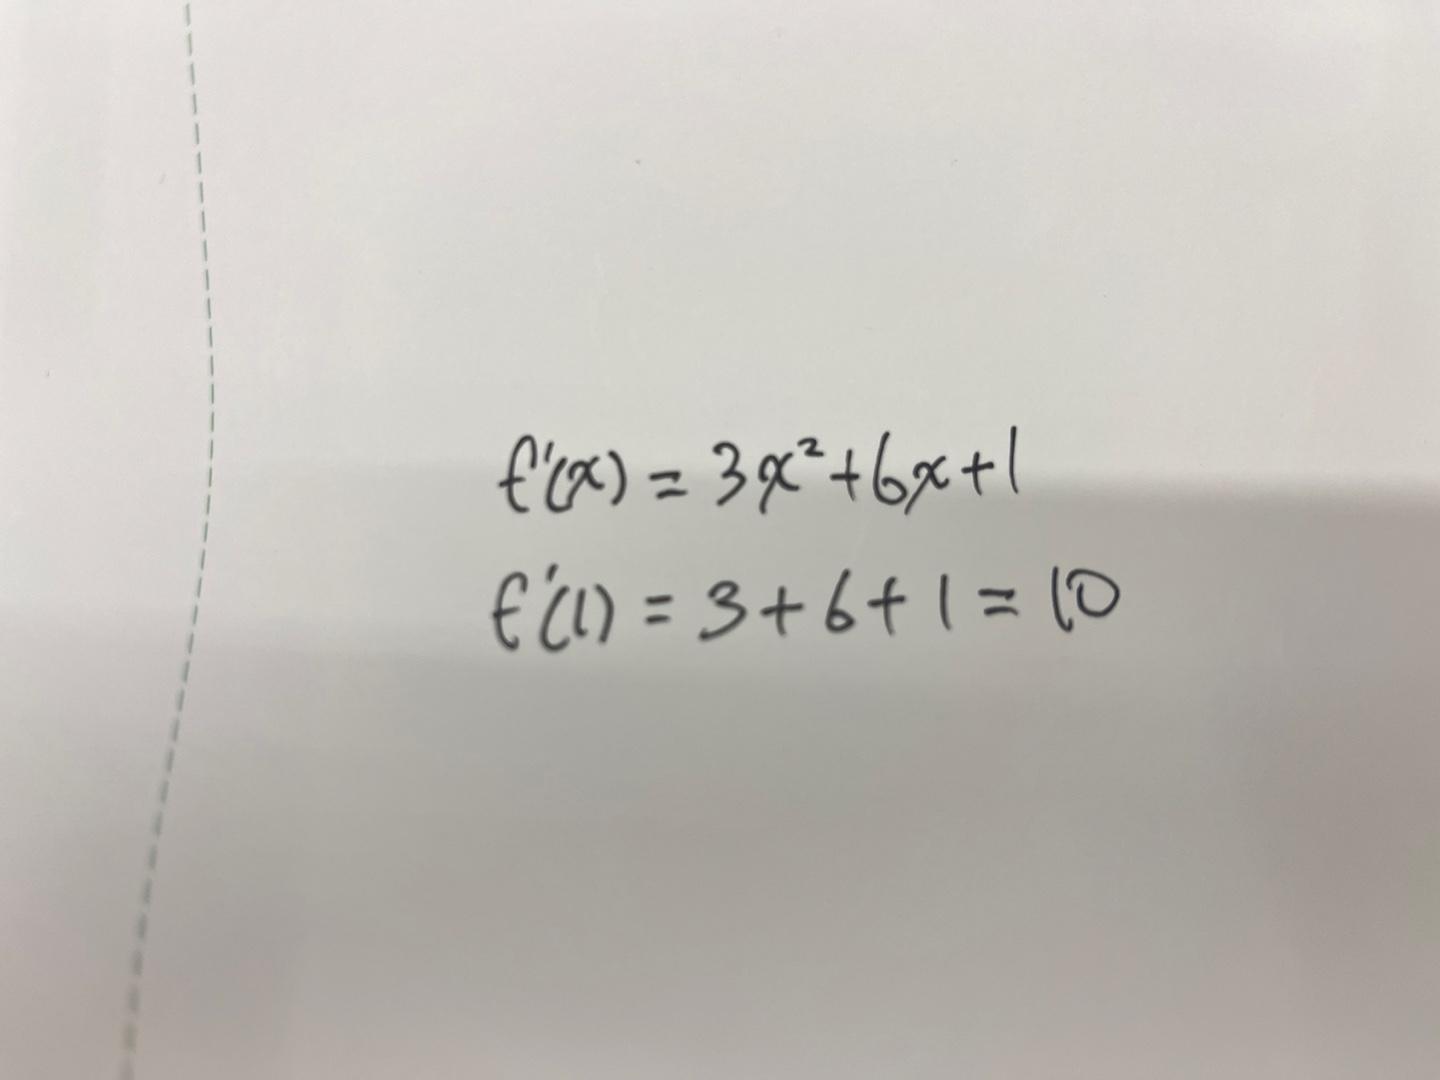 f'(x) = 3x²+6x+1
f'(1) = 3+6+1=10